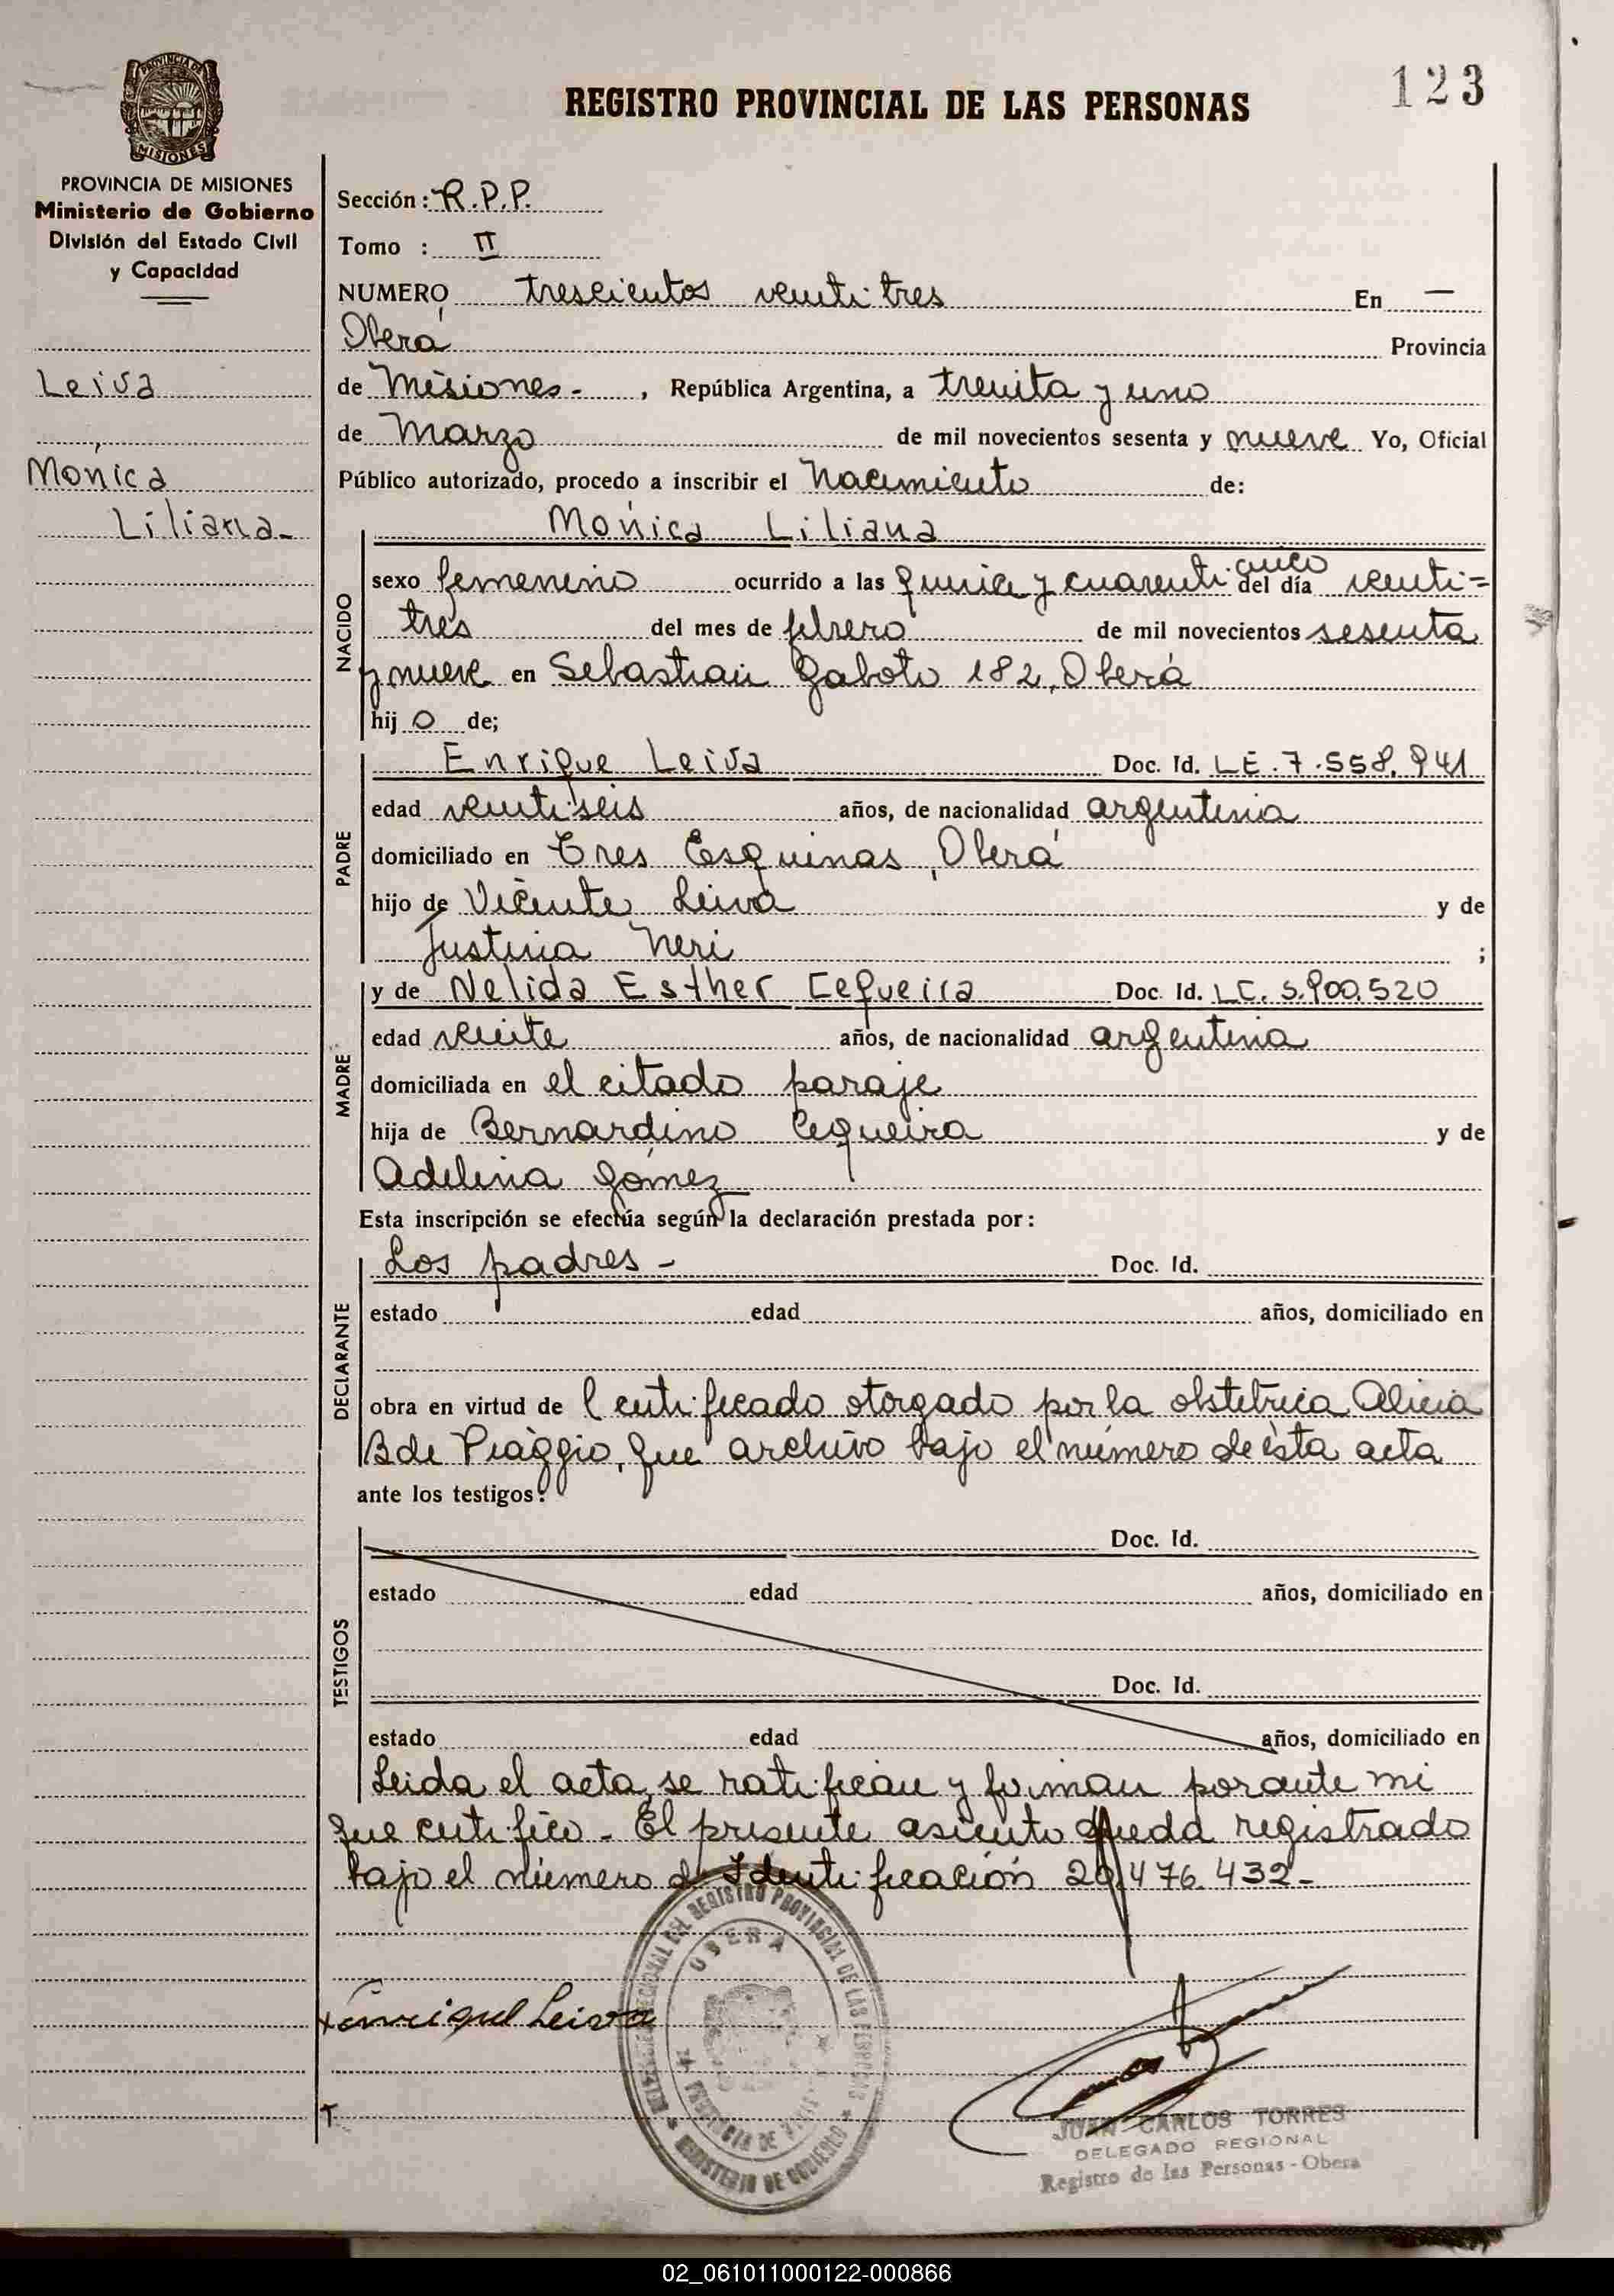 123
REGISTRO PROVINCIAL DE LAS PERSONAS
PROVINCIA DE MISIONES
MISIONES
PROVINCIA DE MISIONES
Ministerio de Gobierno
División del Estado Civil
y Capacidad
Leiva
Mónica
Liliana-
Sección: R.P.P.
Tomo : II
NUMERO trescientos veinti tres En —
Oberá Provincia
de Misiones- , República Argentina, a treinta y uno
de Marzo de mil novecientos sesenta y nueve Yo, Oficial
Público autorizado, procedo a inscribir el Nacimiento de:
Mónica Liliana
NACIDO
sexo femenino ocurrido a las quince y cuarenti cinco del día veinti=
tres del mes de febrero de mil novecientos sesenta
y nueve en Sebastian Gaboto 182, Oberá
hij o de;
PADRE
Enrique Leiva Doc. Id. LE. 7.558.941
edad veinti seis años, de nacionalidad argentina
domiciliado en Tres Esquinas, Oberá
hijo de Vicente Leiva y de
Justina Neri ;
MADRE
y de Nelida Esther Cequeira Doc. Id. LC. 5.900.520
edad veinte años, de nacionalidad argentina
domiciliada en el citado paraje
hija de Bernardino Cequeira y de
Adelina Gómez
Esta inscripción se efectúa según la declaración prestada por:
DECLARANTE
Los padres - Doc. Id.
estado edad años, domiciliado en
obra en virtud de l certificado otorgado por la obstetrica Alicia
B de Piaggio, que archivo bajo el número de ésta acta
ante los testigos:
TESTIGOS
Doc. Id.
estado edad años, domiciliado en
Doc. Id.
estado edad años, domiciliado en
Leida el acta, se ratifican y firman por ante mi
que certifico - El presente asiento queda registrado
bajo el número de Identificación 20.476.432-
DEL REGISTRO PROVINCIAL DE LAS PERSONAS
OBERA
PROVINCIA DE
MINISTERIO DE GOBIERNO
x Enrique Leiva
JUAN CARLOS TORRES
DELEGADO REGIONAL
Registro de las Personas - Obera
02_061011000122-000866